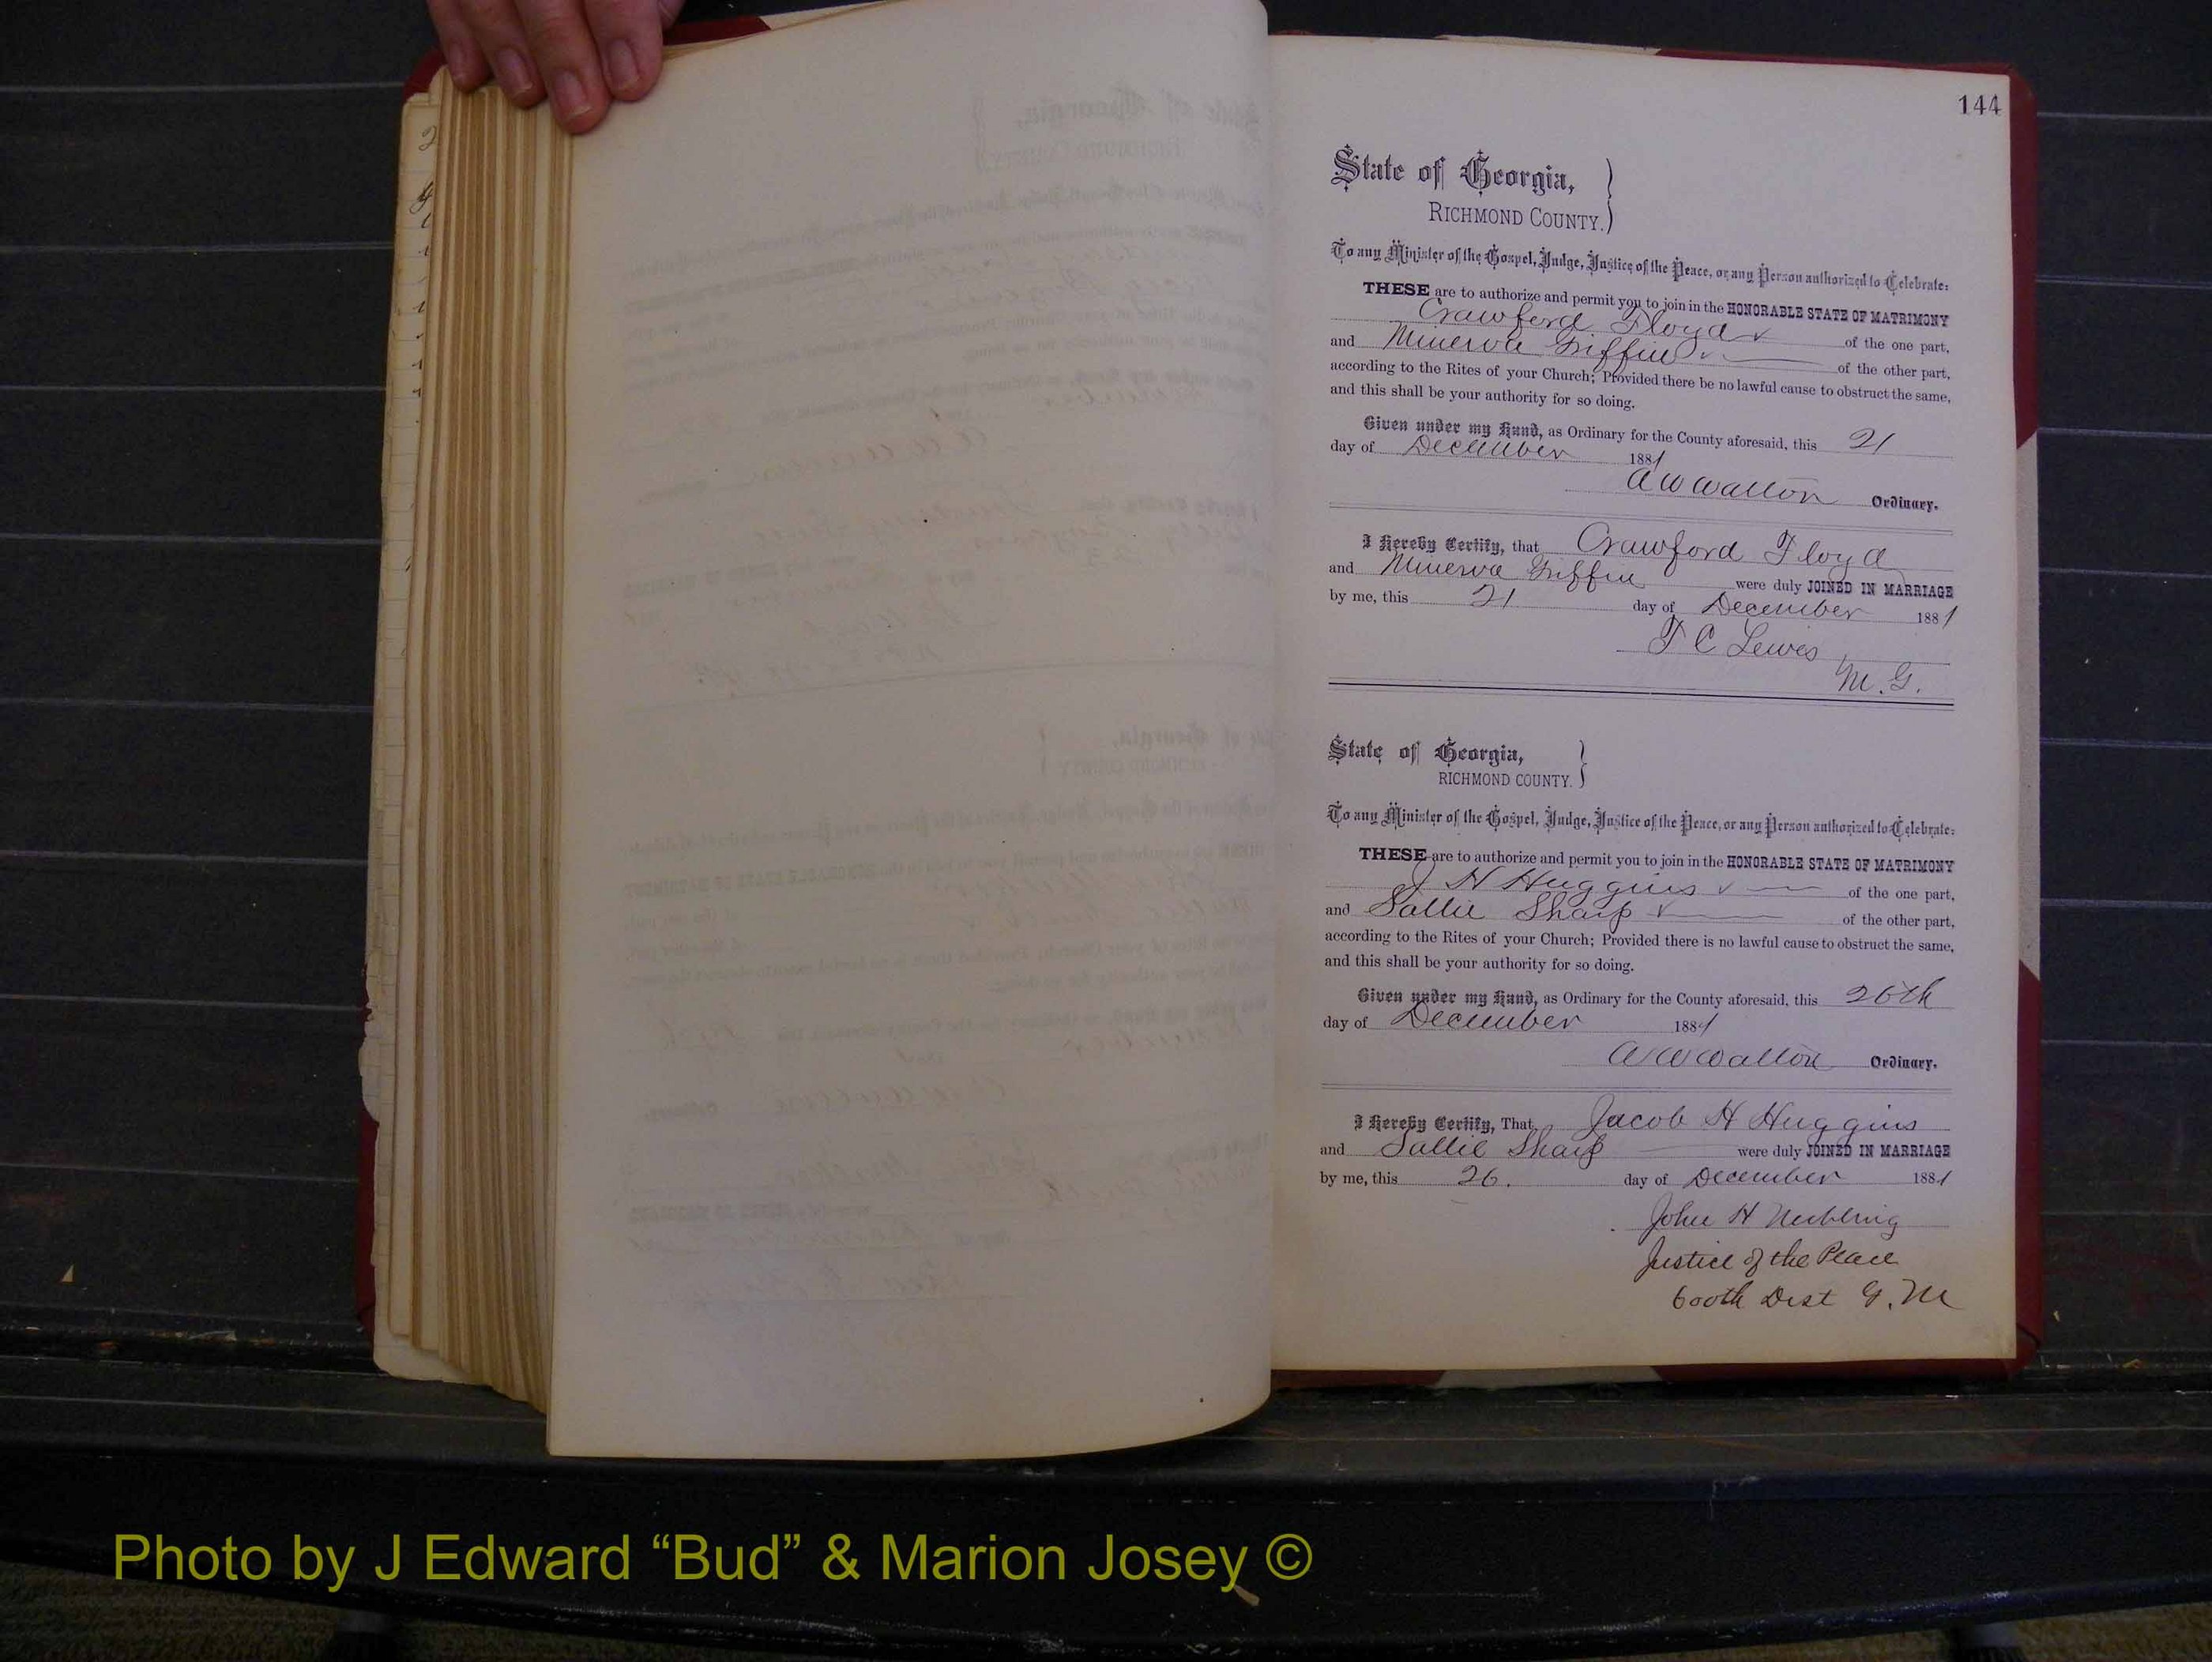 144
State of Georgia,
RICHMOND COUNTY.
To any Minister of the Gospel, Judge, Justice of the Peace, or any Person authorized to Celebrate:
THESE are to authorize and permit you to join in the HONORABLE STATE OF MATRIMONY
Crawford Floyd of the one part,
and Minerva Griffin of the other part,
according to the Rites of your Church; Provided there be no lawful cause to obstruct the same,
and this shall be your authority for so doing.
Given under my Hand, as Ordinary for the County aforesaid, this 21
day of December 1881
A W Walton Ordinary.
I Hereby Certify, that Crawford Floyd
and Minerva Griffin were duly JOINED IN MARRIAGE
by me, this 21 day of December 1881
T C Lewis
M. G.
State of Georgia,
RICHMOND COUNTY.
To any Minister of the Gospel, Judge, Justice of the Peace, or any Person authorized to Celebrate:
THESE are to authorize and permit you to join in the HONORABLE STATE OF MATRIMONY
J H Huggins of the one part,
and Sallie Sharp of the other part,
according to the Rites of your Church; Provided there is no lawful cause to obstruct the same,
and this shall be your authority for so doing.
Given under my Hand, as Ordinary for the County aforesaid, this 26th
day of December 1881
A W Walton Ordinary.
I Hereby Certify, That Jacob H Huggins
and Sallie Sharp were duly JOINED IN MARRIAGE
by me, this 26. day of December 1881
John H
Justice of the Peace
600th Dist G. M
Photo by J Edward “Bud” & Marion Josey ©